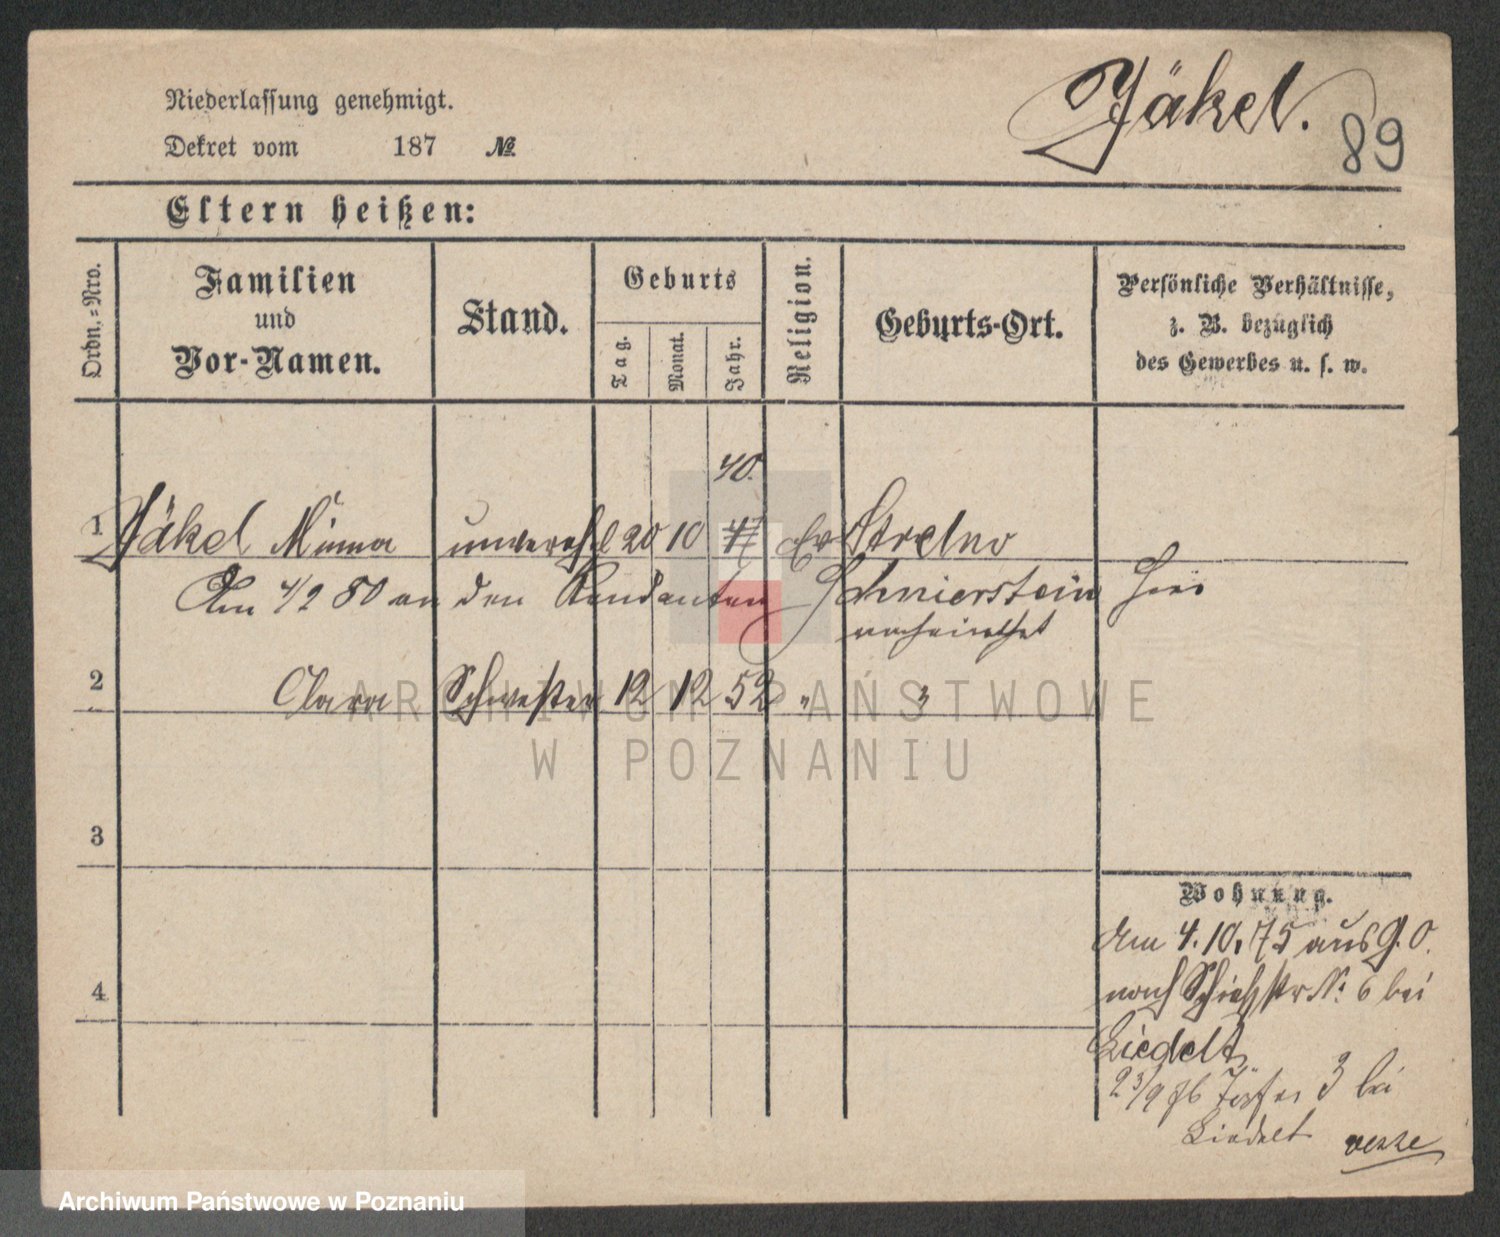 Jäkel.
89
Niederlassung genehmigt.
Dekret vom 187 №
Eltern heißen:
Ordn.-Nro.
Familien
und
Vor-Namen.
Stand.
Geburts
Tag.
Monat.
Jahr.
Religion.
Geburts-Ort.
Persönliche Verhältnisse,
z. B. bezüglich
des Gewerbes u. s. w.
40.
1 Jäkel Minna unvereh 20 10 Ev Strelno
Am 4/2 80 an den Rendanten Schnierstein hier
verheirathet
2 Clara Schwester 12 12 52 " "
3
4
Wohnung.
Am 4. 10. 75 aus G. O.
nach Schießstr N: 6 bei
Liedelt
23/9 76 3 bei
Liedelt
ARCHIWUM PAŃSTWOWE
W POZNANIU
Archiwum Państwowe w Poznaniu